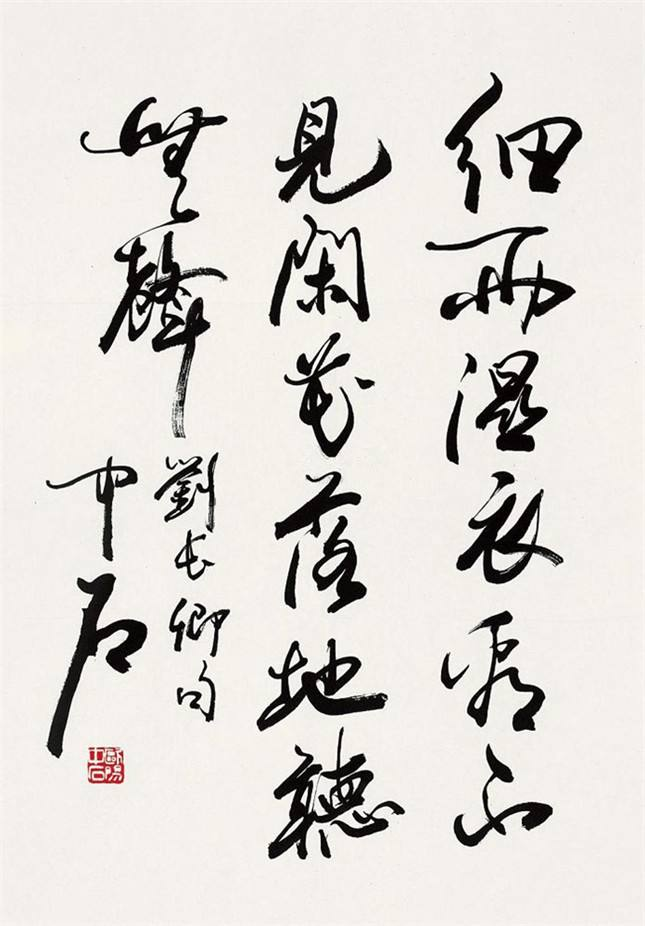 細雨濕衣看不
見閑花落地聽
無聲
劉長卿句
中石
歐陽中石